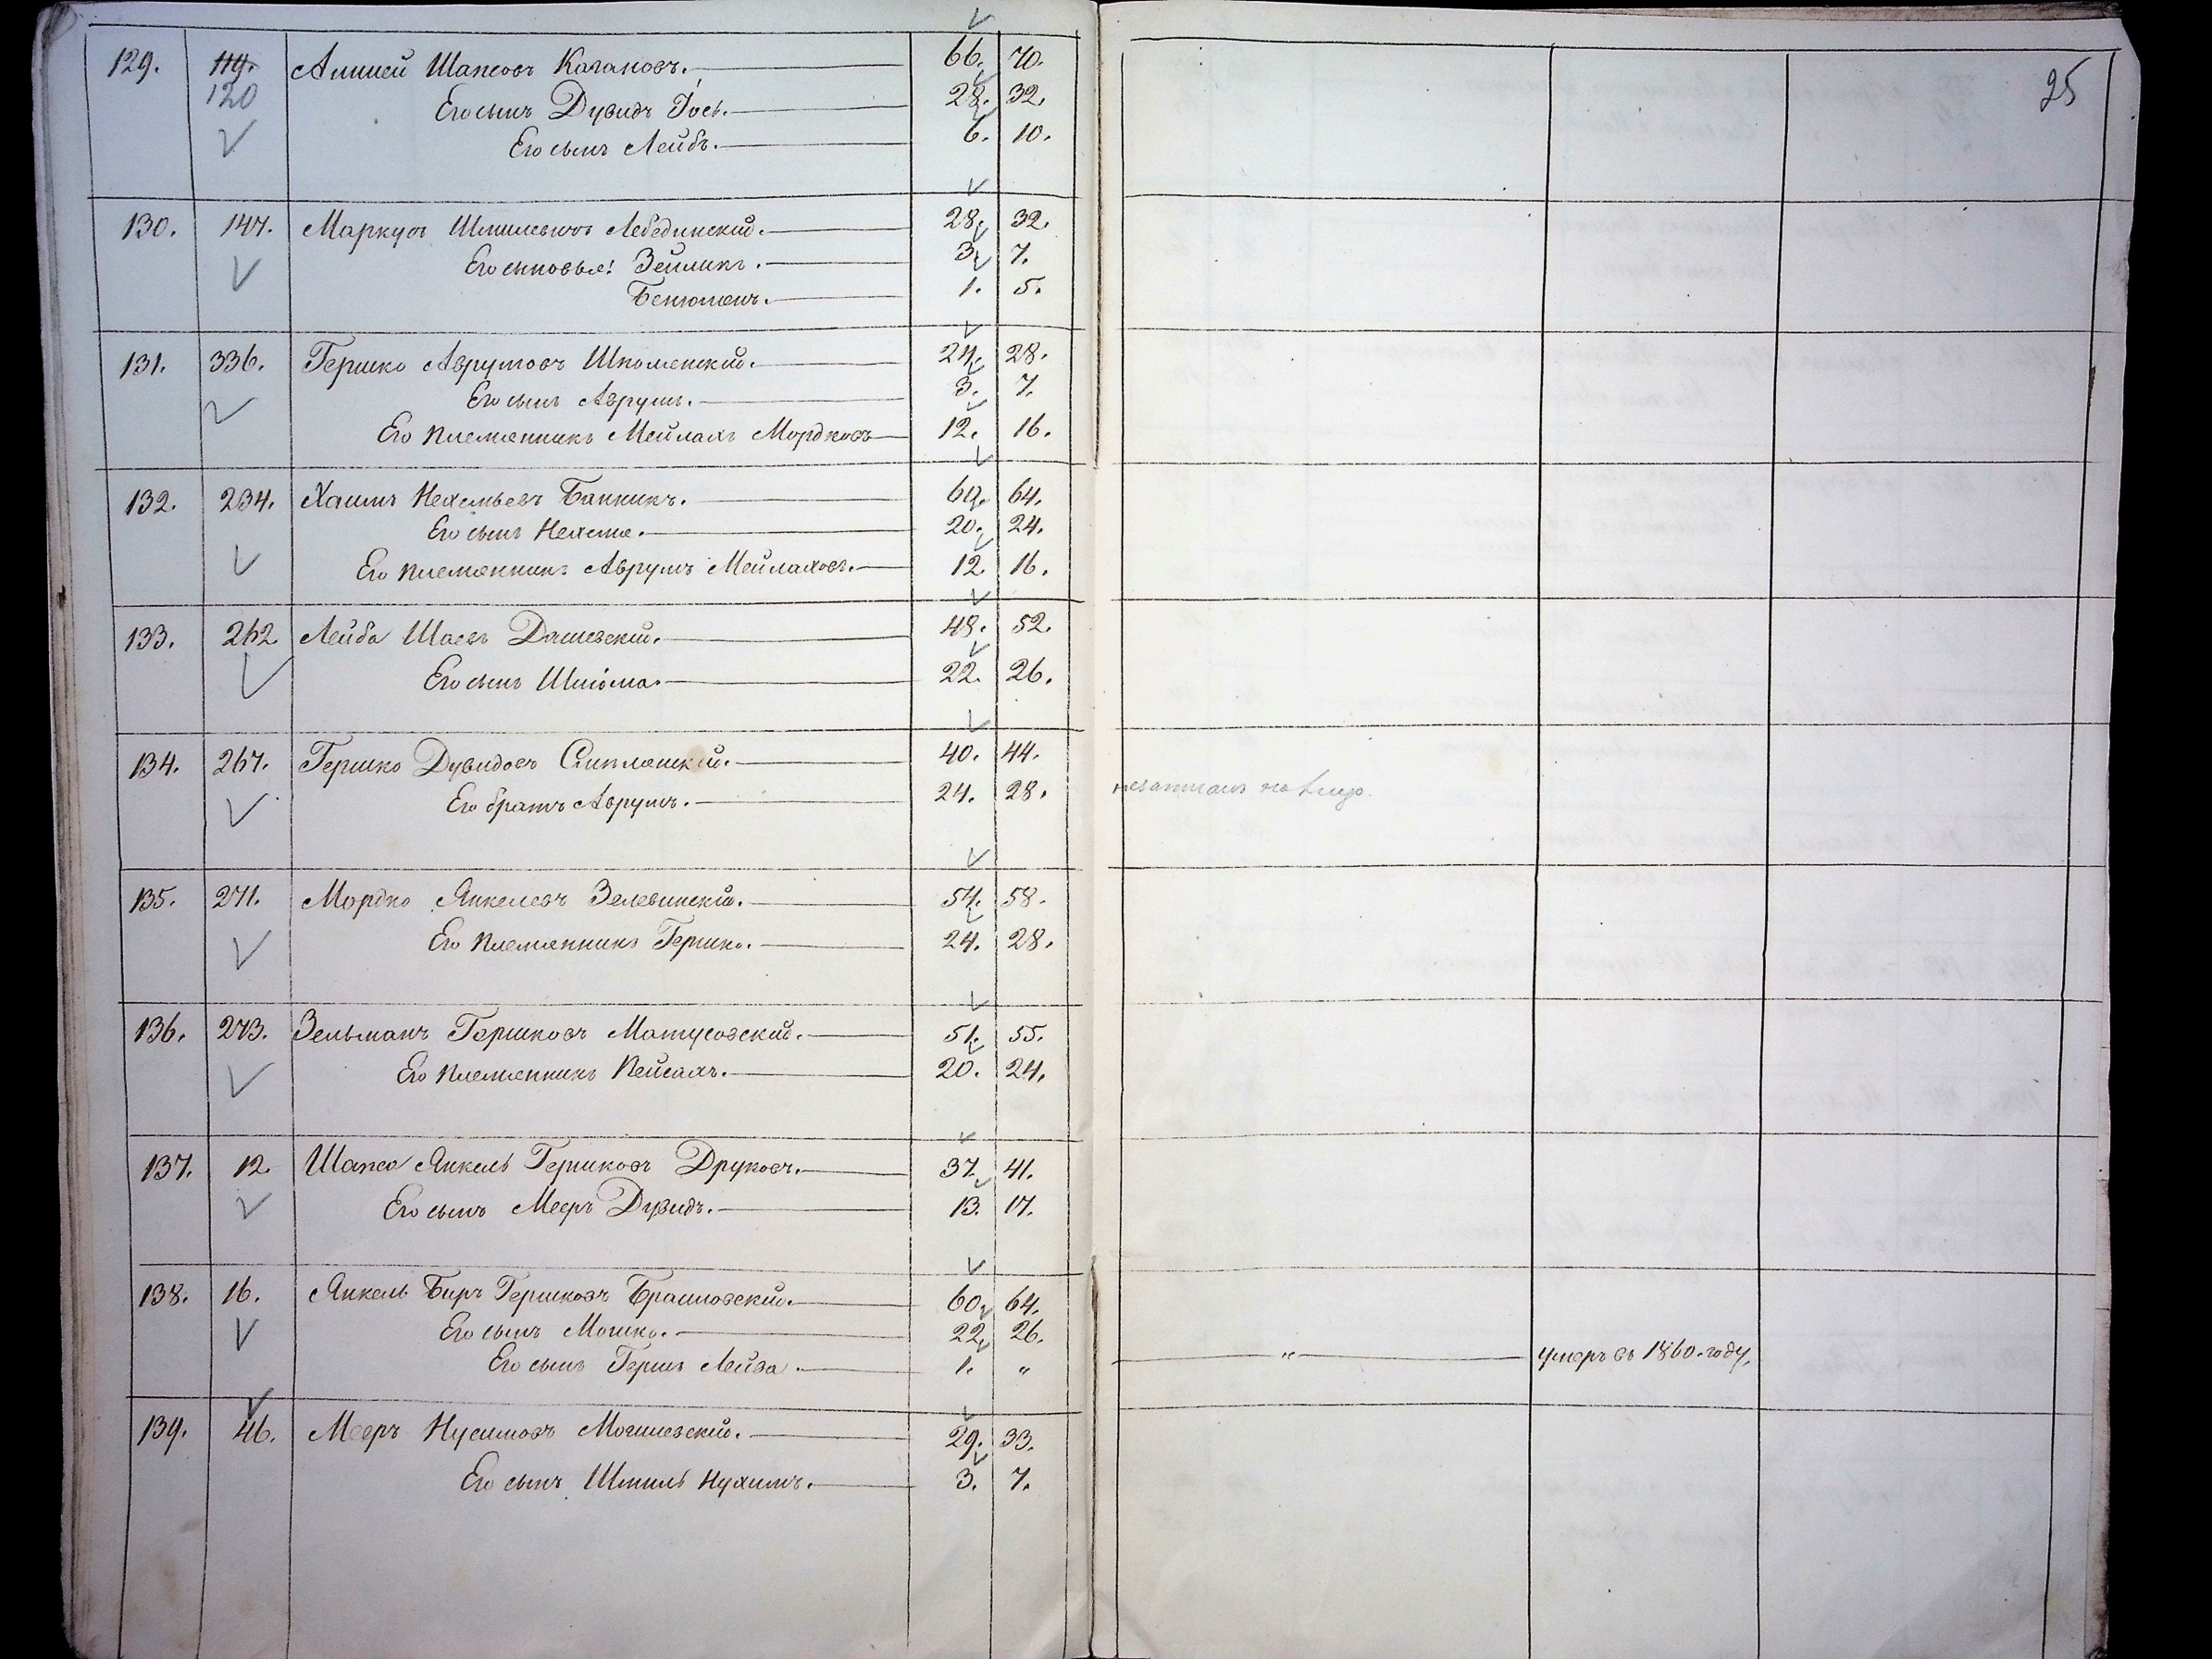 25
129. 119. Аишей Шапсовъ Кагановъ. 66. 70.
120 Его сынъ Дувидъ Іось. 28. 32.
Его сынъ Лейбъ. 6. 10.
130. 147. Маркусъ Шмилевичъ Лебединскій. 28. 32.
Его сыновья: Зейликъ. 3. 7.
Бенюменъ. 1. 5.
131. 336. Гершко Аврумовъ Шполенскій. 24. 28.
Его сынъ Аврумъ. 3. 7.
Его племянникъ Мейлахъ Мордковъ 12. 16.
132. 234. Хаимъ Нехемьевъ Банникъ. 60. 64.
Его сынъ Нехеме. 20. 24.
Его племянникъ Аврумъ Мейлаховъ. 12 16.
133. 262 Лейба Шаевъ Дашевскій. 48. 52.
Его сынъ Шліома. 22. 26.
134. 267. Гершко Дувидовъ 40. 44.
Его братъ Аврумъ. 24. 28.
135. 271. Мордко Янкелевъ Зелевинскій. 54. 58.
Его племянникъ Гершко. 24. 28.
136. 273. Зельманъ Гершковъ Матусовскій. 51. 55.
Его племянникъ Пейсахъ. 20. 24.
137. 12. Шапса Янкель Гершковъ Друковъ. 37. 41.
Его сынъ Мееръ Дувидъ. 13. 17.
138. 16. Янкель Биръ Гершковъ Браиловскій. 60. 64.
Его сынъ Мошко. 22. 26.
Его сынъ Гершъ Лейба. 1. " " умеръ въ 1860. году.
139. 46. Мееръ Нусимовъ Могилевскій. 29. 33.
Его сынъ Шмиль Нухимъ. 3. 7.